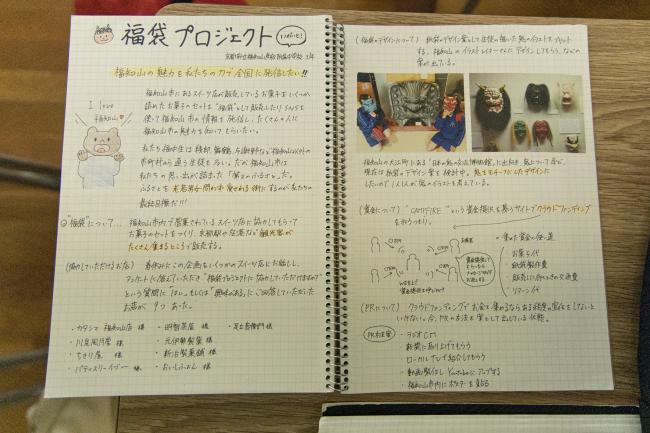 福袋プロジェクト
福知山の魅力を私たちの力で全国に発信したい!!
I love
福知山
福知山市にあるスイーツ店が販売しているお菓子をいくつか
詰めたお菓子のセットを"福袋"として販売したり
使って福知山市の情報を発信し、たくさんの人に
福知山市の魅力を知ってもらいたい。
市町村から通う生徒も多い。だが、福知山市は
私たちの思い出が詰まった「第2のふるさと」だ。
ふるさとを老若男女問わず愛される街にするのが私たちの
最終目標だ!!
"福袋"について…
福知山市内で営業されているスイーツ店に協力してもらって
お菓子のセットをつくり、京都駅や空港など観光客が
たくさん集まるところで販売する。
(協力していただけるお店)
春休みにこの企画をいくつかのスイーツ店にお話しし、
アンケートに答えていただき"福袋プロジェクトに協力していただけますか?"
という質問に「はい」もしくは「興味がある」にご回答していただいた
お店が9つあった。
・カタシマ 福知山店 様
・明智茶屋 様
・足立音衛門 様
・川見風月堂 様
・元伊勢製菓 様
・ちきり屋 様
・新治製菓舗 様
・おいしふぉん 様
(福袋のデザインについて)
紙袋のデザイン案として生徒の描いた鬼のイラストをプリント
する、福知山のイラストレイターさんにデザインしてもらう、などの
案が出ている。
福知山の大江町にある「日本の鬼の交流博物館」に出向き、鬼について学び、
現在は紙袋のデザイン案を検討中。鬼をモチーフにしたデザインに
したいので1人1人が鬼のイラストを考えている。
(資金について)
"CAMPFIRE"という資金提供を募るサイトでクラウドファンディング
を行うつもり。
・集めた資金の使い道
お菓子代
紙袋製作費
販売しに行くときの交通費
リターン代
(PRについて)
クラウドファンディングでお金を集めるならある程度の宣伝をしないと
いけない。今、PRの方法を案として出している状態。
PR方法案
・ラジオCM
・新聞に取り上げてもらう
・ローカルTVで紹介してもらう
・動画製作し YouTubeにアップする
・福知山市内にポスターを貼る